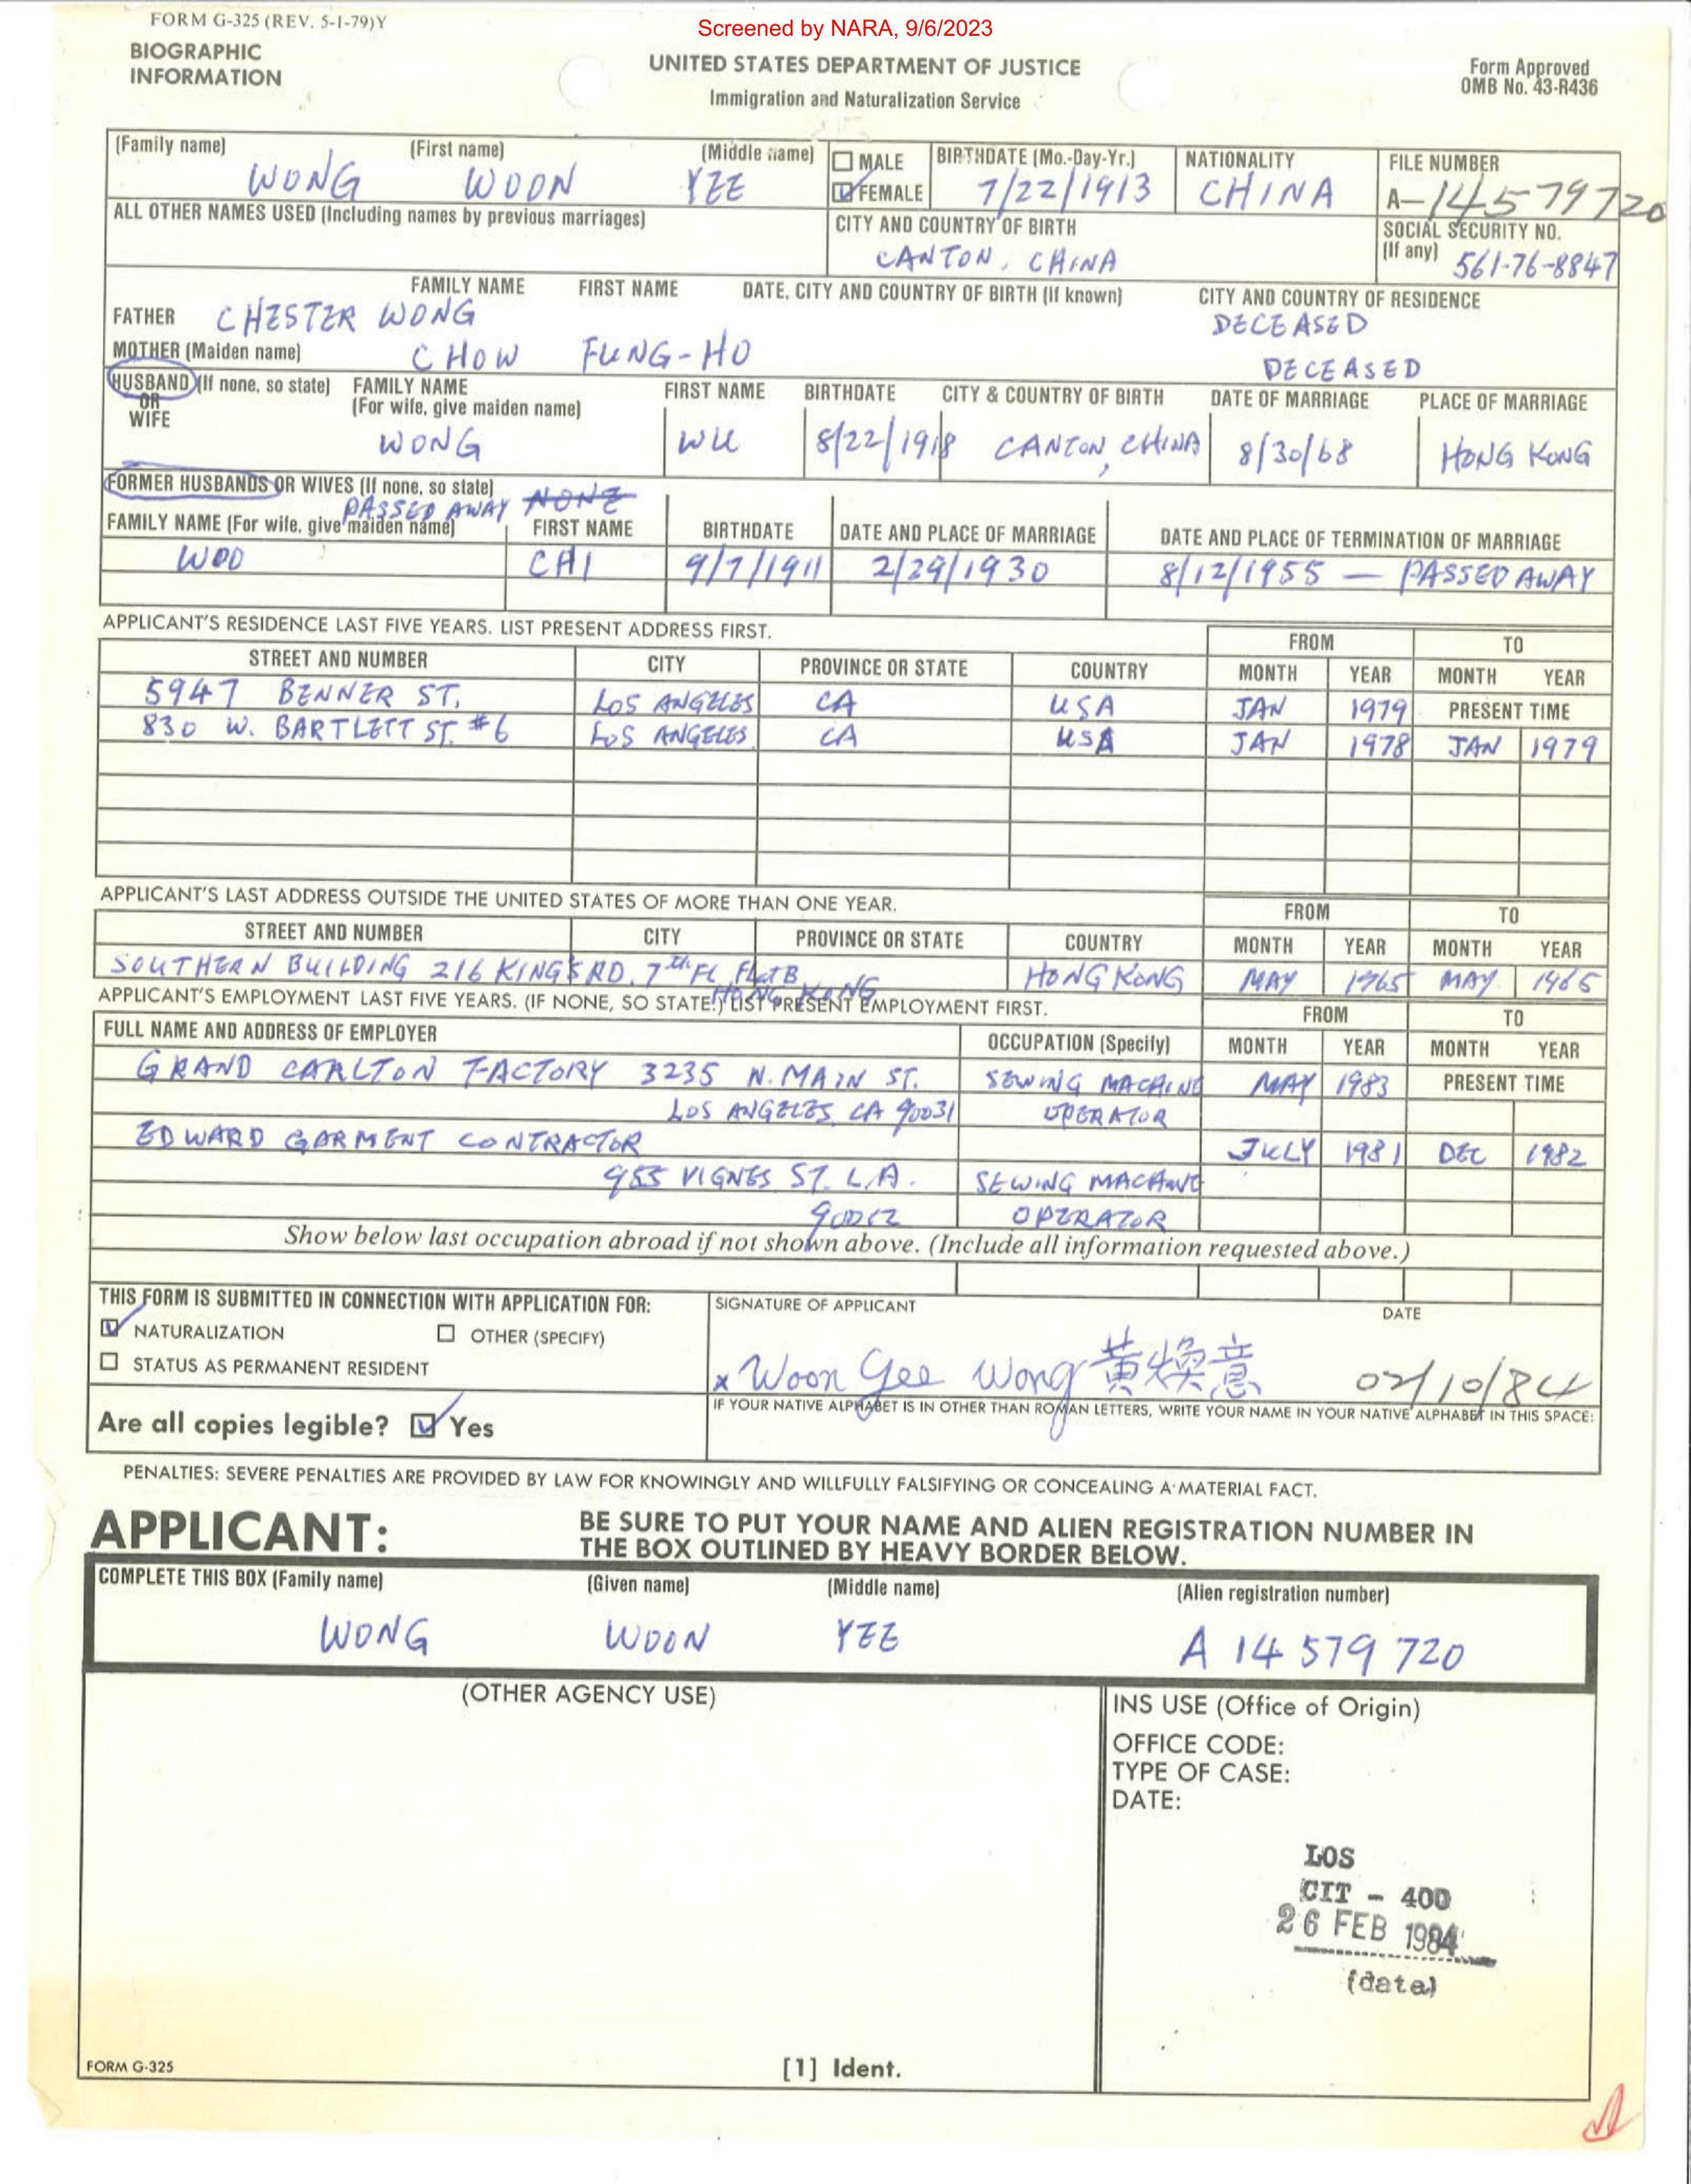 FORM G-325 (REV. 5-1-79)Y
Screened by NARA, 9/6/2023
BIOGRAPHIC
INFORMATION
UNITED STATES DEPARTMENT OF JUSTICE
Immigration and Naturalization Service
Form Approved
OMB No. 43-R436
(Family name) (First name) (Middle name) MALE BIRTHDATE (Mo.-Day-Yr.) NATIONALITY FILE NUMBER
WONG WOON YEE FEMALE 7/22/1913 CHINA A-14579720
ALL OTHER NAMES USED (Including names by previous marriages) CITY AND COUNTRY OF BIRTH SOCIAL SECURITY NO.
CANTON, CHINA (If any) 561-76-8847
FAMILY NAME FIRST NAME DATE, CITY AND COUNTRY OF BIRTH (If known) CITY AND COUNTRY OF RESIDENCE
FATHER CHESTER WONG DECEASED
MOTHER (Maiden name) CHOW FUNG-HO DECEASED
HUSBAND (If none, so state) FAMILY NAME FIRST NAME BIRTHDATE CITY & COUNTRY OF BIRTH DATE OF MARRIAGE PLACE OF MARRIAGE
OR (For wife, give maiden name)
WIFE
WONG WU 8/22/1918 CANTON, CHINA 8/30/68 HONG KONG
FORMER HUSBANDS OR WIVES (If none, so state)
PASSED AWAY NONE
FAMILY NAME (For wife, give maiden name) FIRST NAME BIRTHDATE DATE AND PLACE OF MARRIAGE DATE AND PLACE OF TERMINATION OF MARRIAGE
WOO CHI 9/7/1911 2/29/1930 8/12/1955 — PASSED AWAY
APPLICANT'S RESIDENCE LAST FIVE YEARS. LIST PRESENT ADDRESS FIRST.
FROM TO
STREET AND NUMBER CITY PROVINCE OR STATE COUNTRY MONTH YEAR MONTH YEAR
5947 BENNER ST. LOS ANGELES CA USA JAN 1979 PRESENT TIME
830 W. BARTLETT ST. #6 LOS ANGELES CA USA JAN 1978 JAN 1979
APPLICANT'S LAST ADDRESS OUTSIDE THE UNITED STATES OF MORE THAN ONE YEAR.
FROM TO
STREET AND NUMBER CITY PROVINCE OR STATE COUNTRY MONTH YEAR MONTH YEAR
SOUTHERN BUILDING 216 KING'S RD. 7th FL FLAT B HONG KONG MAY 1965 MAY
HONG KONG
APPLICANT'S EMPLOYMENT LAST FIVE YEARS. (IF NONE, SO STATE.) LIST PRESENT EMPLOYMENT FIRST.
FROM TO
FULL NAME AND ADDRESS OF EMPLOYER OCCUPATION (Specify) MONTH YEAR MONTH YEAR
GRAND CARLTON FACTORY 3235 N. MAIN ST. SEWING MACHINE MAY 1983 PRESENT TIME
LOS ANGELES, CA 90031 OPERATOR
EDWARD GARMENT CONTRACTOR JULY 1981 DEC 1982
955 VIGNES ST. L.A. SEWING MACHINE
90012 OPERATOR
Show below last occupation abroad if not shown above. (Include all information requested above.)
THIS FORM IS SUBMITTED IN CONNECTION WITH APPLICATION FOR: SIGNATURE OF APPLICANT DATE
NATURALIZATION OTHER (SPECIFY)
STATUS AS PERMANENT RESIDENT
x Woon Yee Wong 黄煥意 02/10/84
IF YOUR NATIVE ALPHABET IS IN OTHER THAN ROMAN LETTERS, WRITE YOUR NAME IN YOUR NATIVE ALPHABET IN THIS SPACE:
Are all copies legible? Yes
PENALTIES: SEVERE PENALTIES ARE PROVIDED BY LAW FOR KNOWINGLY AND WILLFULLY FALSIFYING OR CONCEALING A MATERIAL FACT.
APPLICANT: BE SURE TO PUT YOUR NAME AND ALIEN REGISTRATION NUMBER IN
THE BOX OUTLINED BY HEAVY BORDER BELOW.
COMPLETE THIS BOX (Family name) (Given name) (Middle name) (Alien registration number)
WONG WOON YEE A 14 579 720
(OTHER AGENCY USE)
INS USE (Office of Origin)
OFFICE CODE:
TYPE OF CASE:
DATE:
LOS
CIT - 400
26 FEB 1984
(date)
FORM G-325
[1] Ident.